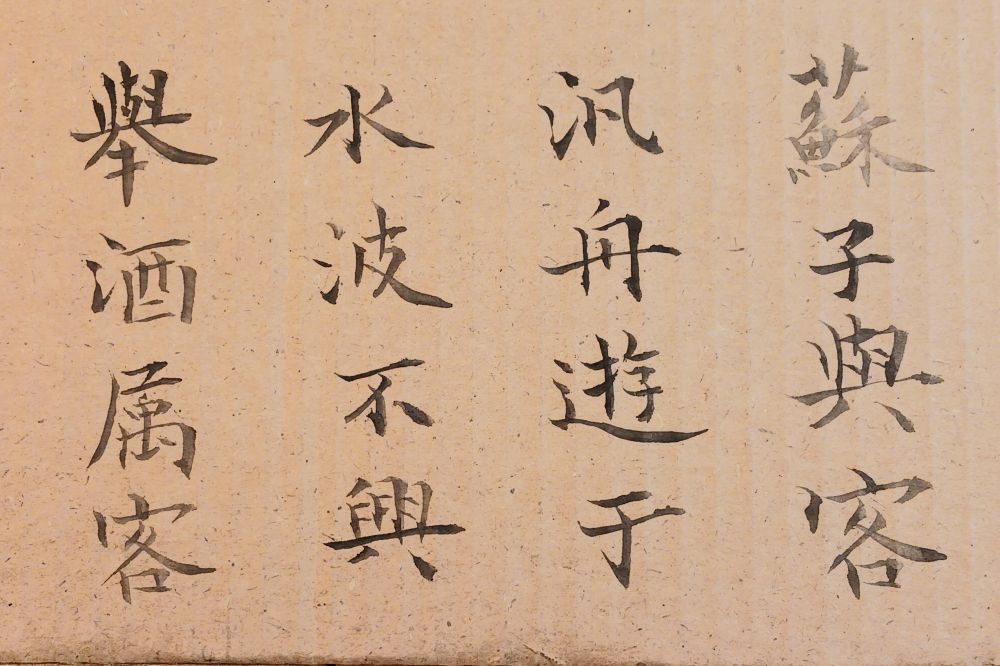 蘇子與客
汎舟遊于
水波不興
舉酒属客